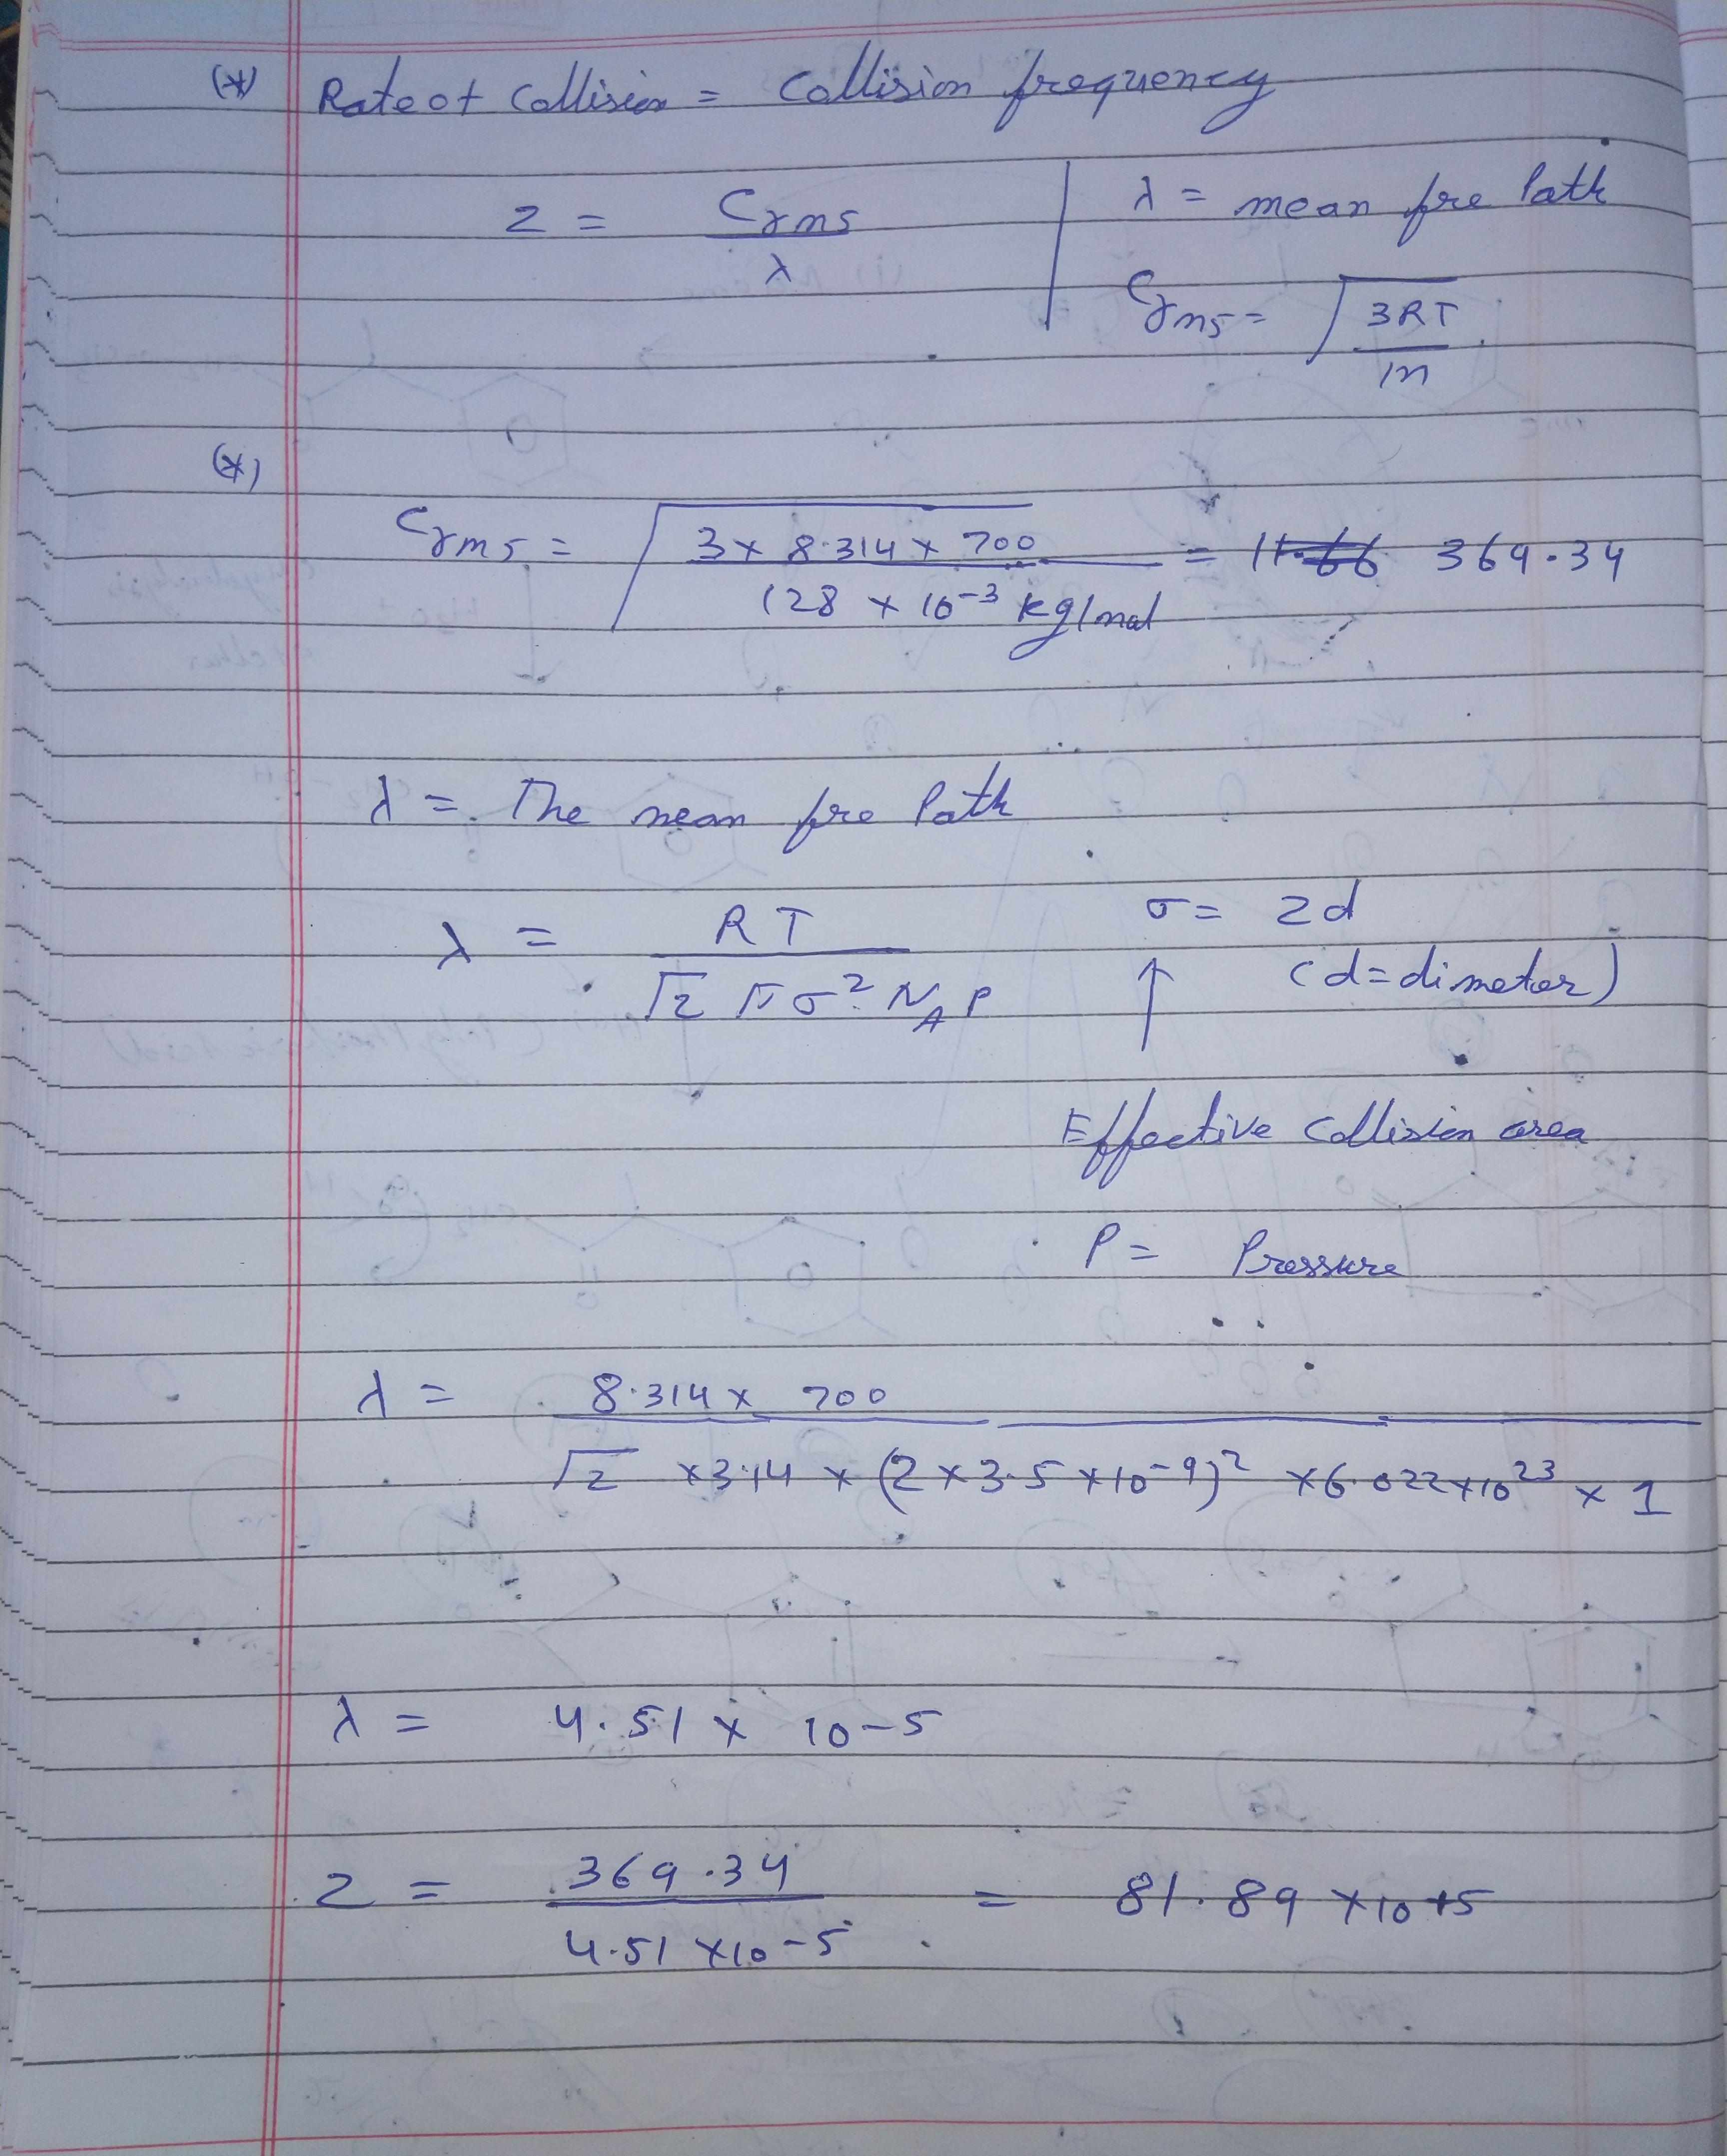 (*) Rate of Collision = Collision frequency
Z = Crms / λ
λ = mean fre Path
Crms = √(3RT / m)
(*)
Crms = √(3 × 8.314 × 700 / 128 × 10⁻³ kg/mol) = 369.34
λ = The mean fre Path
λ = RT / √2 π σ² N_A P
σ = 2d
(d = dimeter)
↑
Effective Collision area
P = Pressure
λ = 8.314 × 700 / √2 × 3.14 × (2 × 3.5 × 10⁻⁹)² × 6.022 × 10²³ × 1
λ = 4.51 × 10-5
Z = 369.34 / 4.51 × 10-5 = 81.89 × 10+5